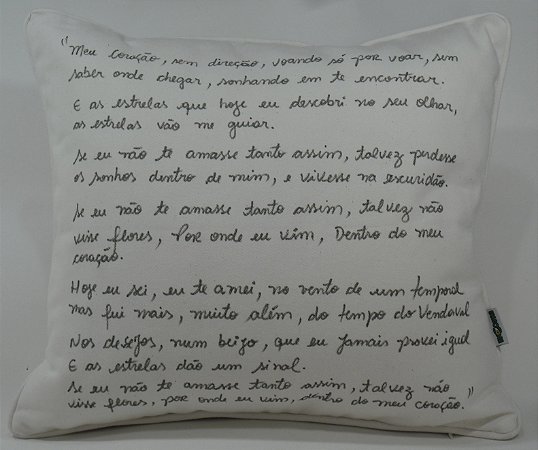 "Meu coração, sem direção, voando só por voar, sem
saber onde chegar, sonhando em te encontrar.
E as estrelas que hoje eu descobri no seu olhar,
as estrelas vão me guiar.
Se eu não te amasse tanto assim, talvez perdesse
os sonhos dentro de mim, e vivesse na escuridão.
Se eu não te amasse tanto assim, talvez não
visse flores, Por onde eu vim, Dentro do meu
coração.
Hoje eu sei, eu te amei, no vento de um temporal
mas fui mais, muito além, do tempo do Vendaval
Nos desejos, num beijo, que eu jamais provei igual
E as estrelas dão um sinal.
Se eu não te amasse tanto assim, talvez não
visse flores, por onde eu vim, dentro do meu coração."